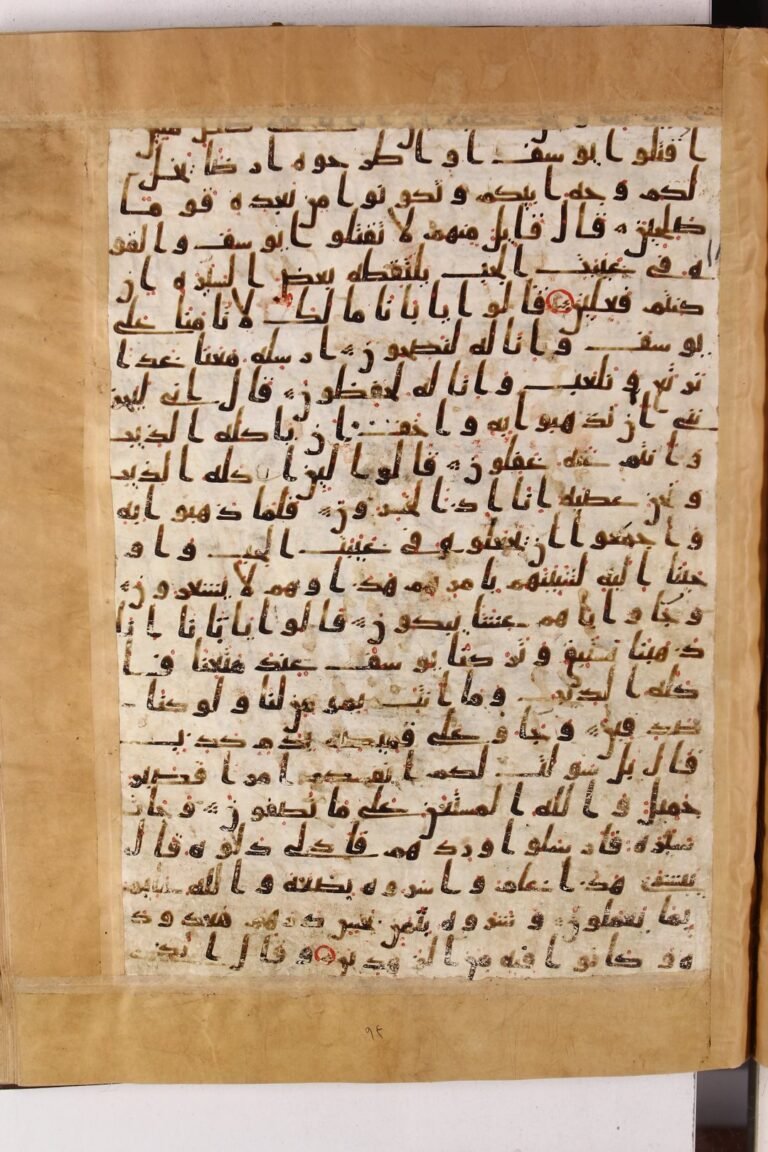 اقتلوا يوسف او اطرحوه ارضا يخل
لكم وجه ابيكم وتكونوا من بعده قوما
صلحين قال قايل منهم لا تقتلوا يوسف والقو
ه في غيبت الجب يلتقطه بعض السيره ان
كنتم فعلين قالوا يابانا ما لك لا تامنا على
يوسف وانا له لنصحون ارسله معنا غدا
نرتع ونلعب وانا له لحفظون قال اني ليحز
نني ان تذهبوا به واخاف ان ياكله الذيب
وانتم عنه غفلون قالوا لين اكله الذيب
ونحن عصبه انا اذا لخسرون فلما ذهبوا به
واجمعوا ان يجعلوه في غيبت الجب واو
حينا اليه لتنبينهم بامرهم هذا وهم لا يشعرون
وجاو اباهم عشا يبكون قالوا يابانا انا
ذهبنا نستبق وتركنا يوسف عند متعنا فا
كله الذيب وما انت بمومن لنا ولو كنا
صدقين وجاو على قميصه بدم كذب
قال بل سولت لكم انفسكم امرا فصبر
جميل والله المستعن على ما تصفون وجات
سيره فارسلوا وردهم فادلى دلوه قال
يبشرى هذا غلم واسروه بضعه والله عليم
بما يعملون وشروه بثمن بخس درهم معدود
ه وكانوا فيه من الزهدين وقال الذي